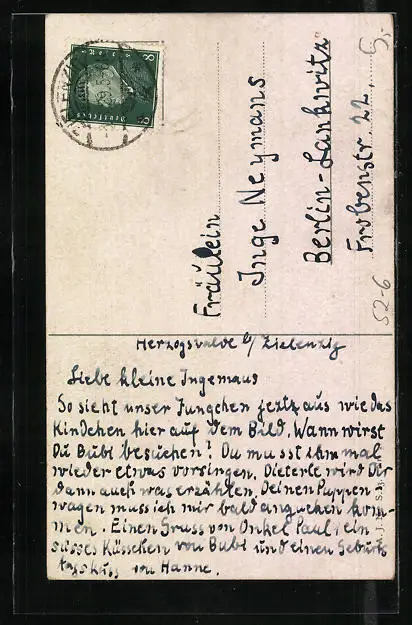 Fräulein
Inge Neymans
Berlin-Lankwitz
Frobenstr. 22.
52-6
Herzogswalde b/ Zielenzig
Liebe kleine Ingemaus
So sieht unser Jungchen jetzt aus wie das
Kindchen hier auf dem Bild. Wann wirst
Du Bubi besuchen! Du musst ihm mal
wieder etwas vorsingen. Dieterle wird Dir
dann auch was erzählen. Deinen Puppen-
wagen muss ich mir bald angucken kom-
men. Einen Gruss von Onkel Paul, ein
süsses Küsschen von Bubi und einen Geburts
tagskuss von Hanne.